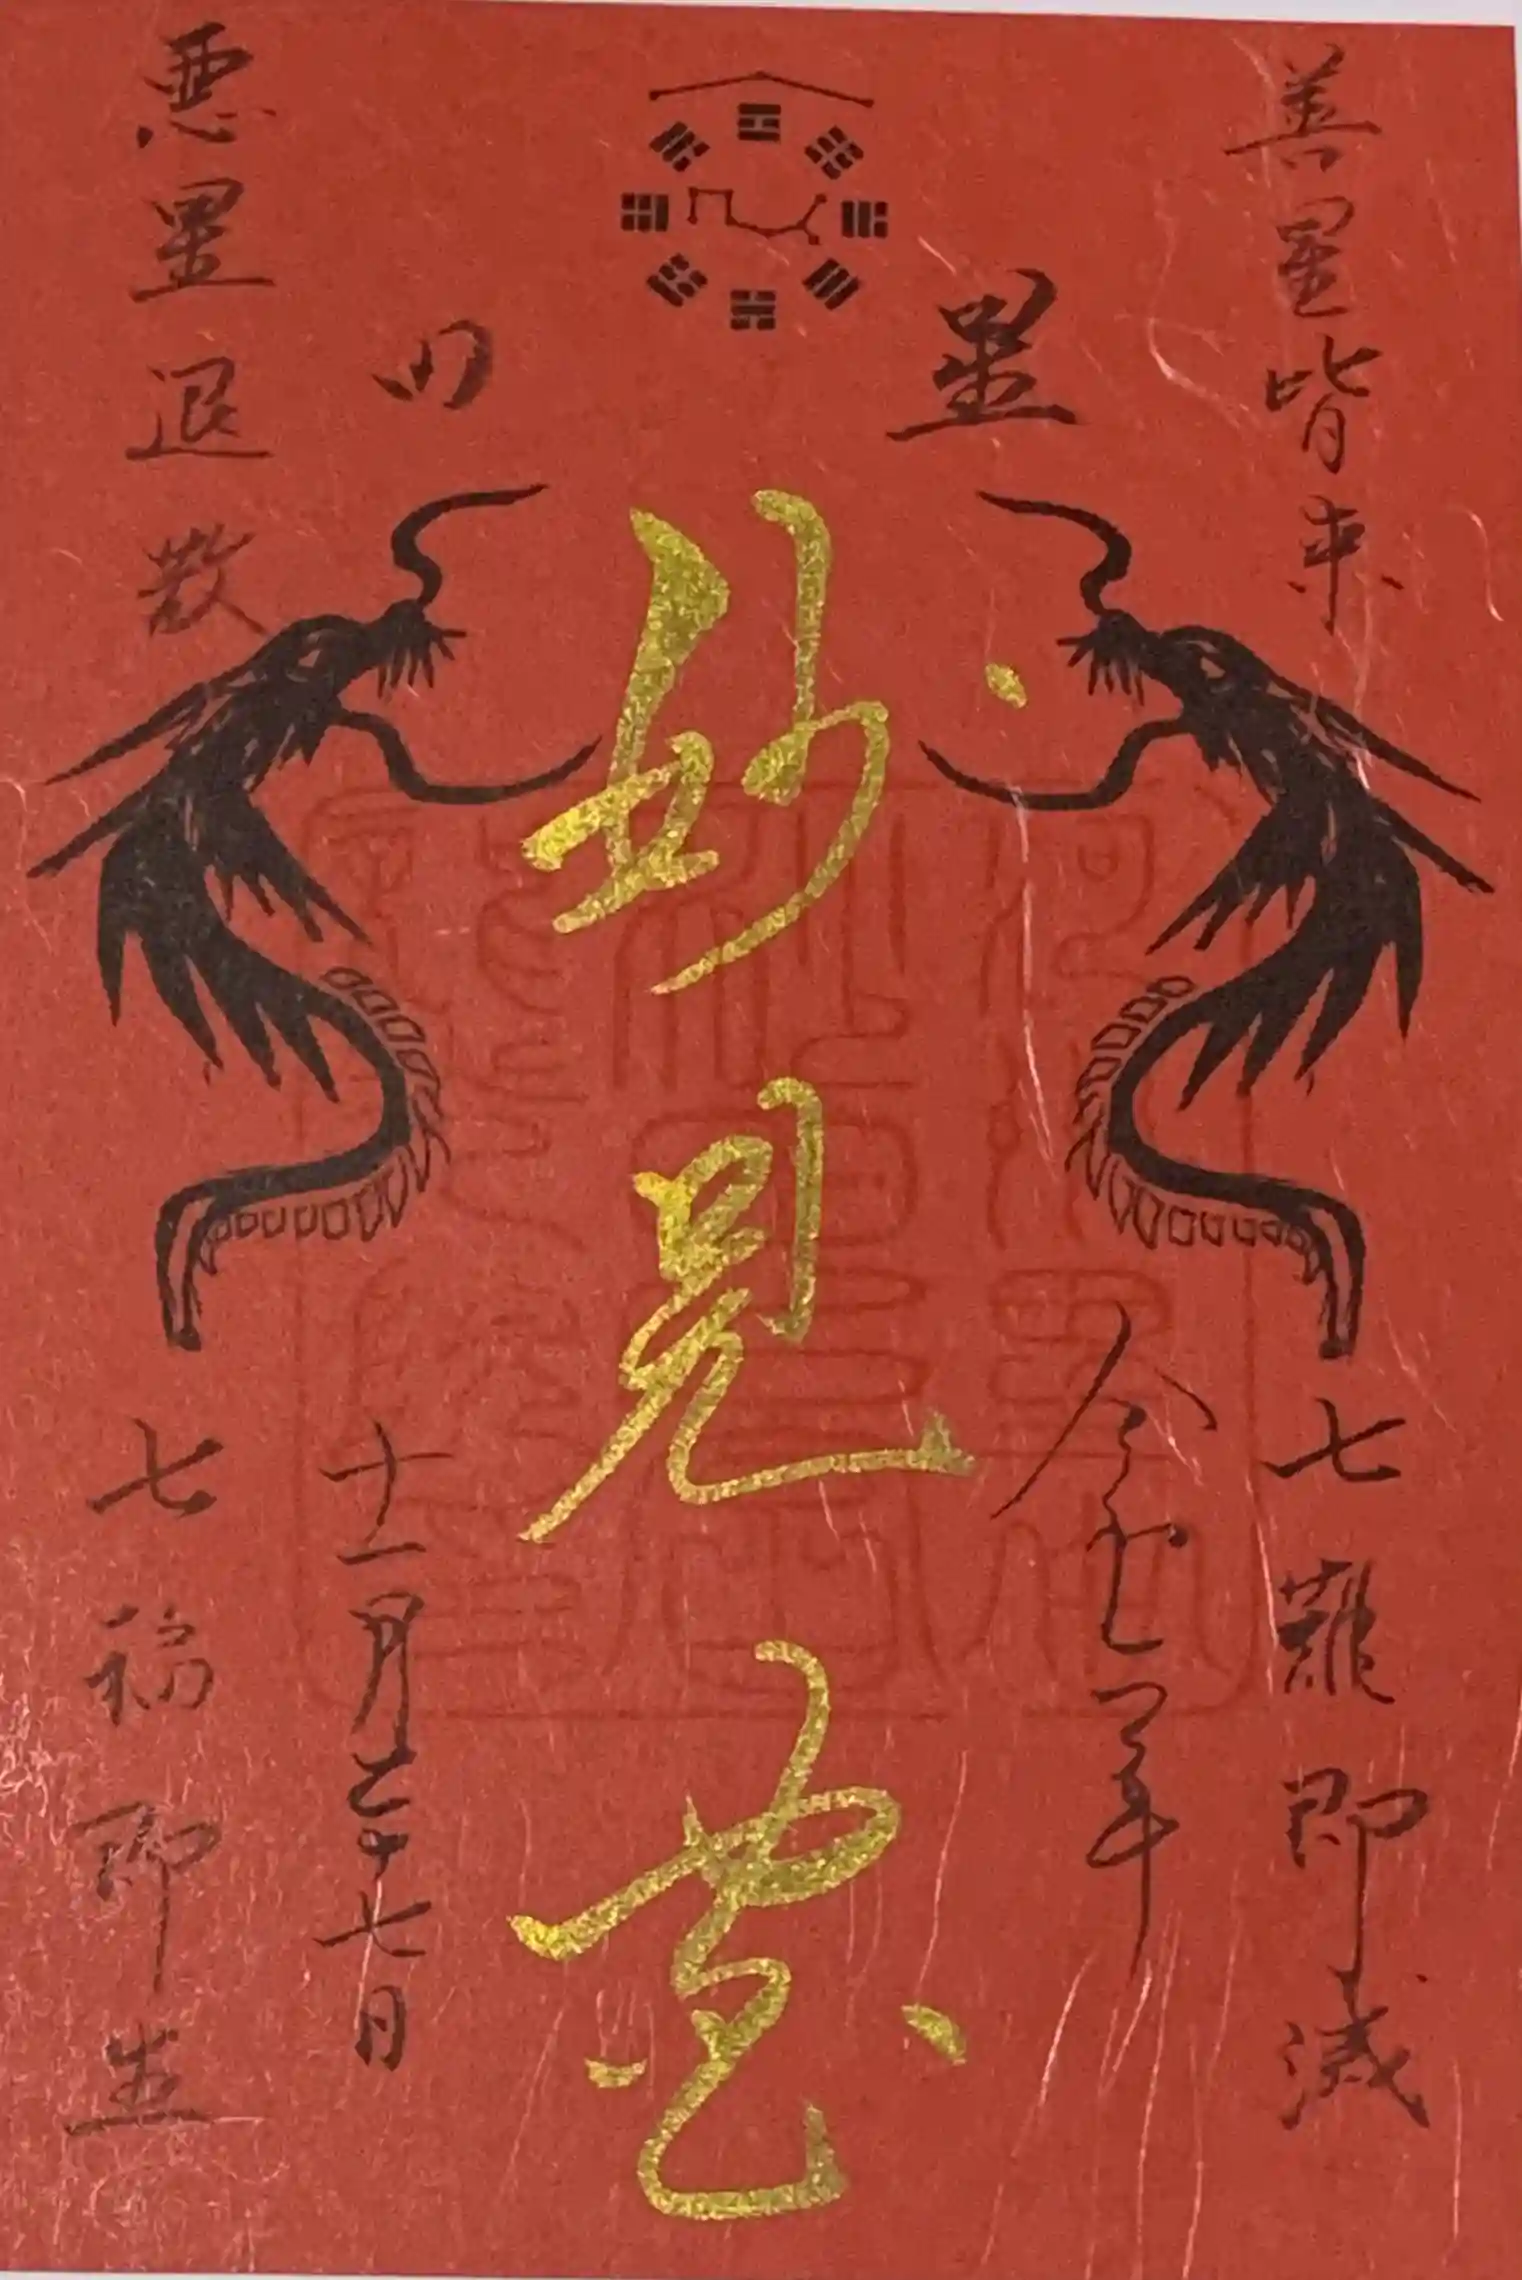 善星皆来
七難即滅
星田
令和七年
妙見宮
十一月二十七日
悪星退散
七福即生